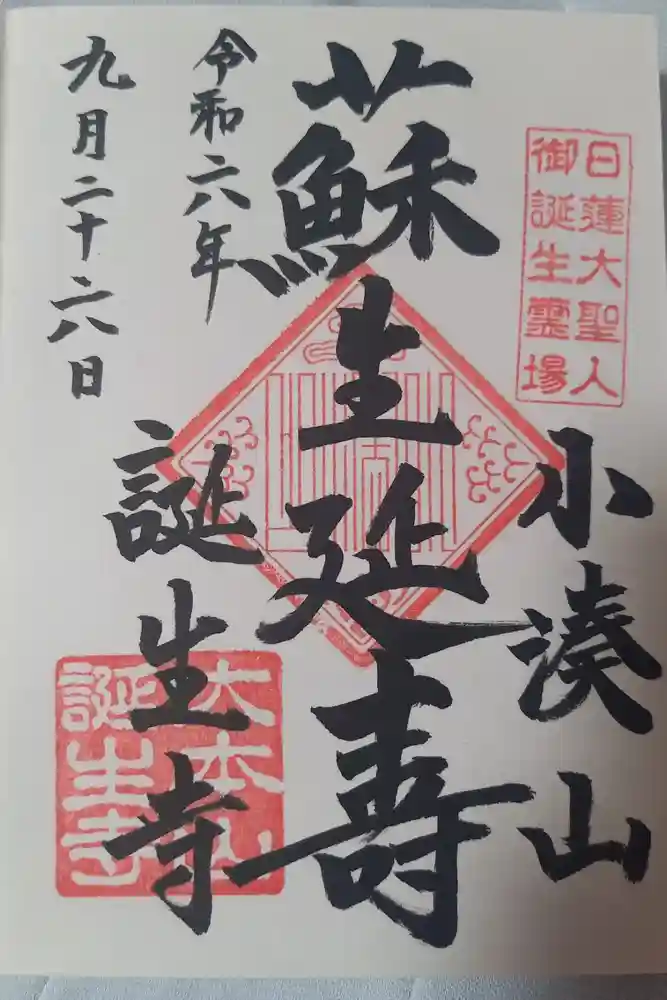 日蓮大聖人
御誕生霊場
小湊山
蘇生延寿
誕生寺
大本山
誕生寺
令和六年
九月二十六日